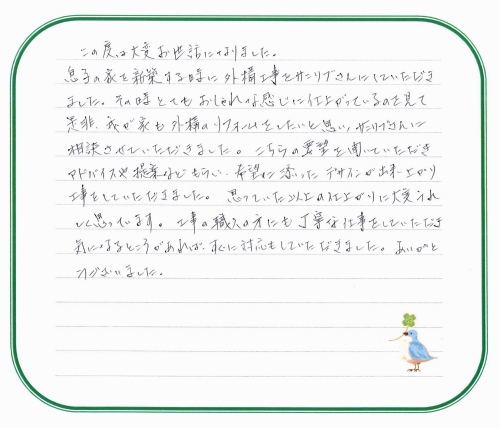 この度は大変お世話になりました。
息子の家を新築する時に外構工事をサニリブさんにしていただき
ました。その時とてもおしゃれな感じに仕上がっているのを見て
是非、我が家も外構のリフォームをしたいと思い、サニリブさんに
相談させていただきました。こちらの要望を聞いていただき
アドバイスや提案などもらい、希望に添ったデザインが出来上がり
工事をしていただきました。思っていた以上の仕上がりに大変うれ
しく思っています。工事の職人の方にも丁寧な仕事をしていただき
気になるところがあれば、すぐに対応もしていただきました。ありがと
うございました。